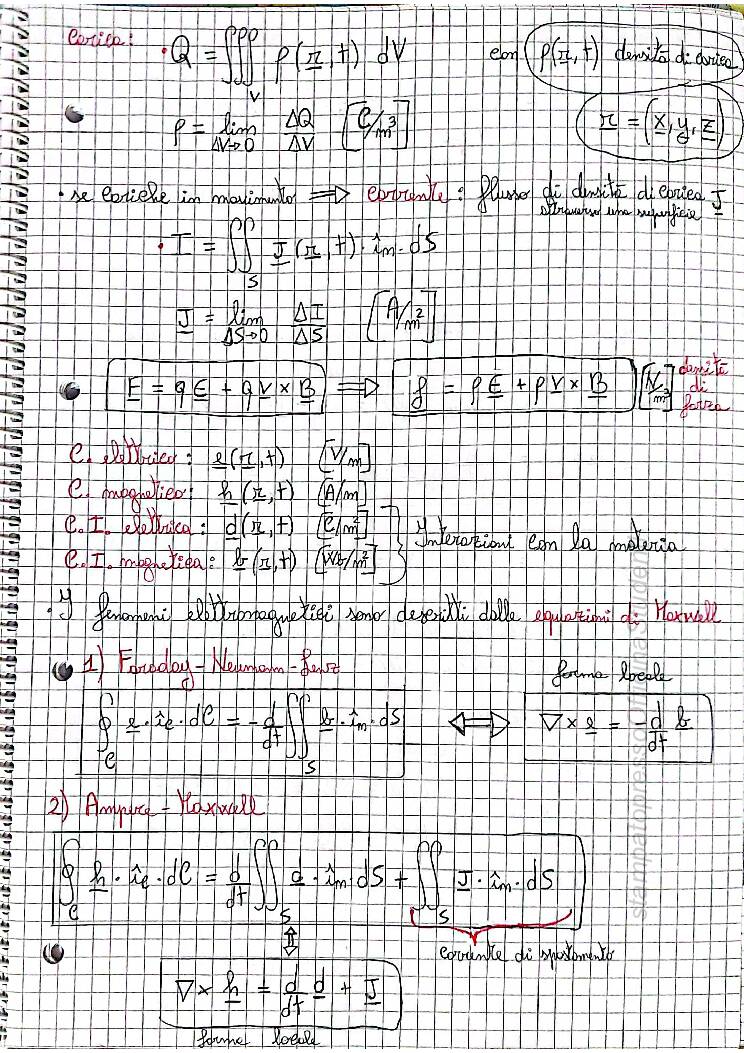 Carica: • Q = ∭_V ρ(r, t) dV con ρ(r, t) densità di carica
ρ = lim_{ΔV→0} ΔQ/ΔV [C/m³] r = (x, y, z)
• se cariche in movimento ⟹ corrente: flusso di densità di carica J
attraverso una superficie
• I = ∬_S J(r, t) · î_n · dS
J = lim_{ΔS→0} ΔI/ΔS [A/m²]
F = qE + qV × B ⟹ f = ρE + ρV × B [N/m³] densità di forza
C. elettrico: e(r, t) [V/m]
C. magnetico: h(r, t) [A/m]
C. I. elettrica: d(r, t) [C/m²] } Interazioni con la materia
C. I. magnetica: b(r, t) [Wb/m²]
• I fenomeni elettromagnetici sono descritti dalle equazioni di Maxwell
1) Faraday-Neumann-Lenz forma locale
∮_C e · î_c · dC = - d/dt ∬_S b · î_n · dS ⟺ ∇ × e = - d/dt b
2) Ampere-Maxwell
∮_C h · î_c · dC = d/dt ∬_S d · î_n · dS + ∬_S J · î_n · dS
⇕ corrente di spostamento
∇ × h = d/dt d + J
forma locale